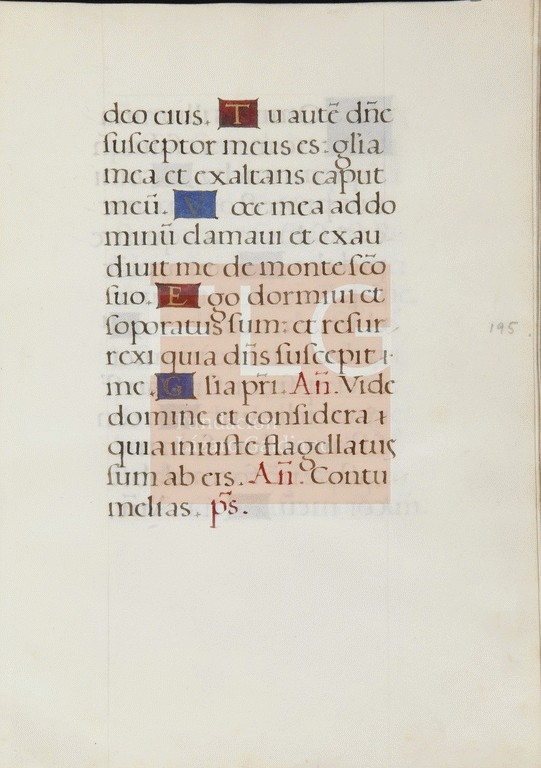 deo eius. Tu autē dn̄e
susceptor meus es: gl̄ia
mea et exaltans caput
meū. Voce mea ad do
minū clamaui et exau
diuit me de monte sc̄o
suo. Ego dormiui et
soporatus sum: et resur
rexi quia dn̄s suscepit
me. Glīa pr̄i. An̄. Vide
domine et considera
quia iniuste flagellatus
sum ab eis. An̄. Contu
melias. ps̄.
195
FLG
Fundación
Lázaro Galdiano